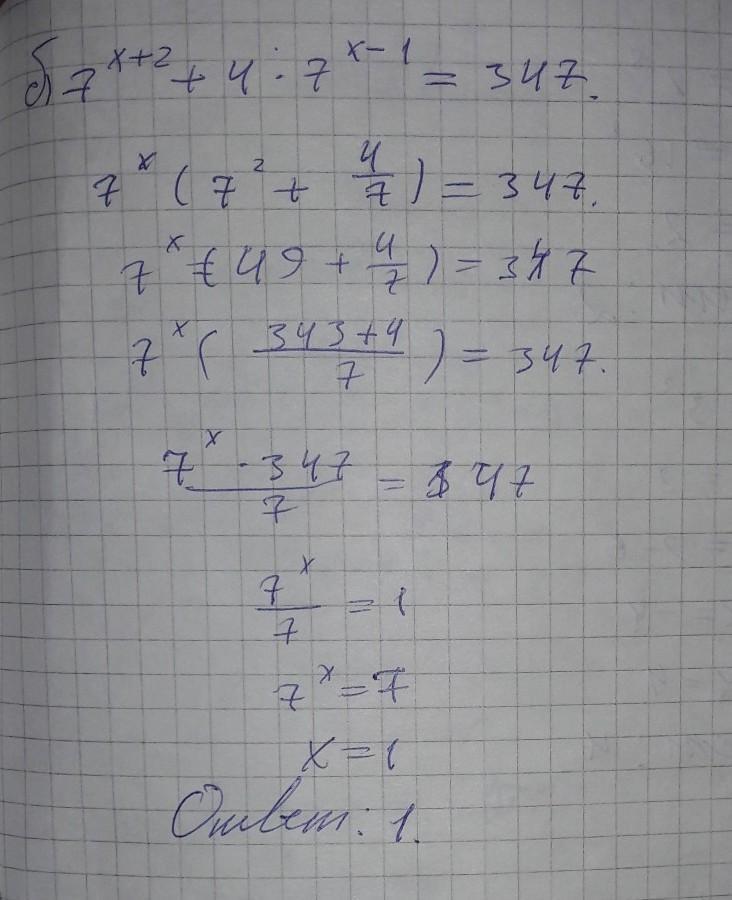 б) 7^{x+2} + 4 · 7^{x-1} = 347.
7^x (7^2 + 4/7) = 347.
7^x (49 + 4/7) = 347
7^x ((343+4)/7) = 347.
(7^x · 347)/7 = 347
7^x/7 = 1
7^x = 7
x = 1
Ответ: 1.